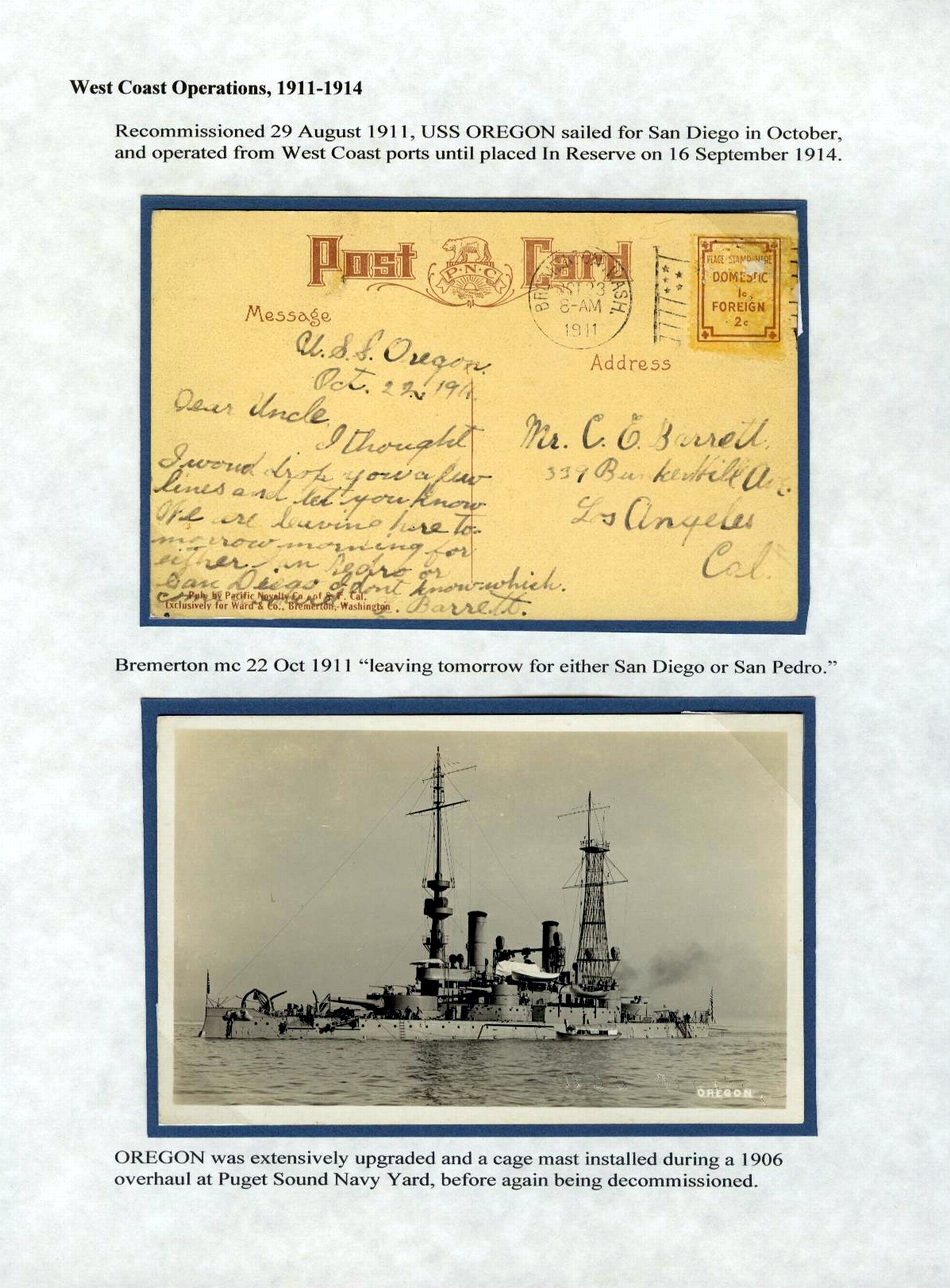 West Coast Operations, 1911-1914
Recommissioned 29 August 1911, USS OREGON sailed for San Diego in October,
and operated from West Coast ports until placed In Reserve on 16 September 1914.
Post Card
P.N.C.
PLACE STAMP HERE
DOMESTIC
1c.
FOREIGN
2c
BREMERTON, WASH.
OCT 23
8-AM
1911
Message
Address
U.S.S. Oregon.
Oct. 22, 1911.
Dear Uncle,
I thought
I woud drop you a few
lines and let you know
We are leaving here to-
morrow morning for
either San Pedro or
San Diego I dont know which.
Barrett.
Mr. C. E. Barrett,
339 Bunker Hill Av.
Los Angeles
Cal.
Pub. by Pacific Novelty Co. of S. F. Cal.
Exclusively for Ward & Co., Bremerton, Washington
Bremerton mc 22 Oct 1911 “leaving tomorrow for either San Diego or San Pedro.”
OREGON
OREGON was extensively upgraded and a cage mast installed during a 1906
overhaul at Puget Sound Navy Yard, before again being decommissioned.